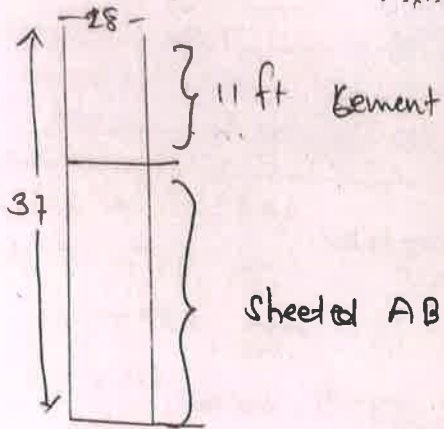 28
11 ft Bement
37
Sheeted AB